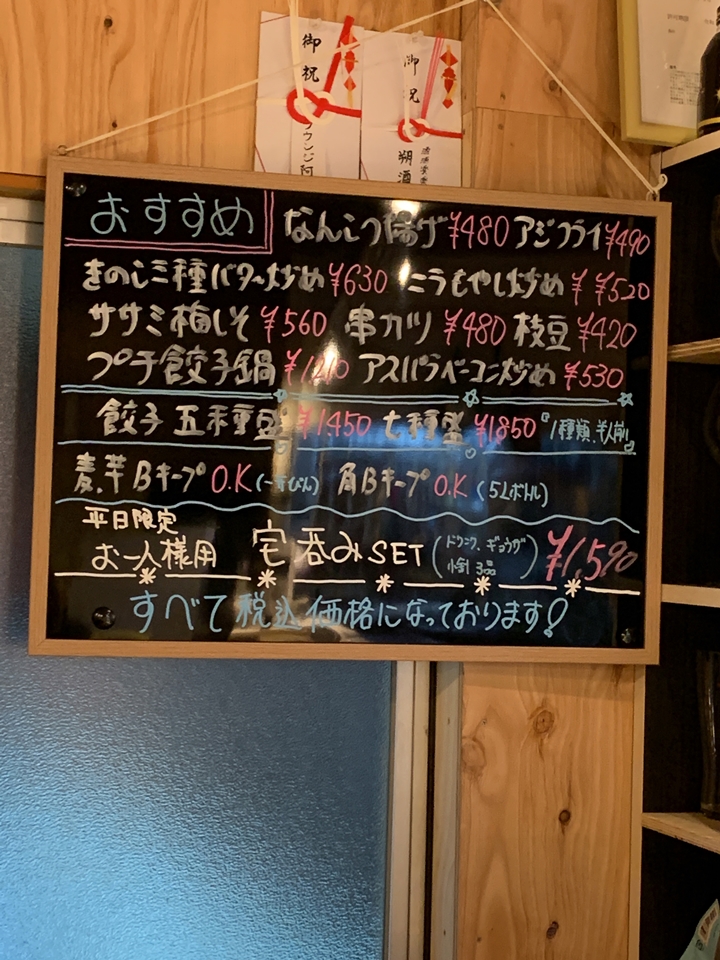 御祝
御祝
おすすめ なんこつ揚げ ¥480 アジフライ ¥490
きのこ三種バター炒め ¥630 ニラもやし炒め ¥ ¥520
ササミ梅しそ ¥560 串カツ ¥480 枝豆 ¥420
プチ餃子鍋 アスパラベーコン炒め ¥530
餃子 五種盛 ¥1450 七種盛 ¥1850 1種類 半人前
麦、芋Bキープ O.K (一升びん) 角Bキープ O.K (5Lボトル)
平日限定
お一人様用 宅呑みSET (ドリンク、ギョウザ 小鉢 3品) ¥1,590
すべて税込価格になっております!